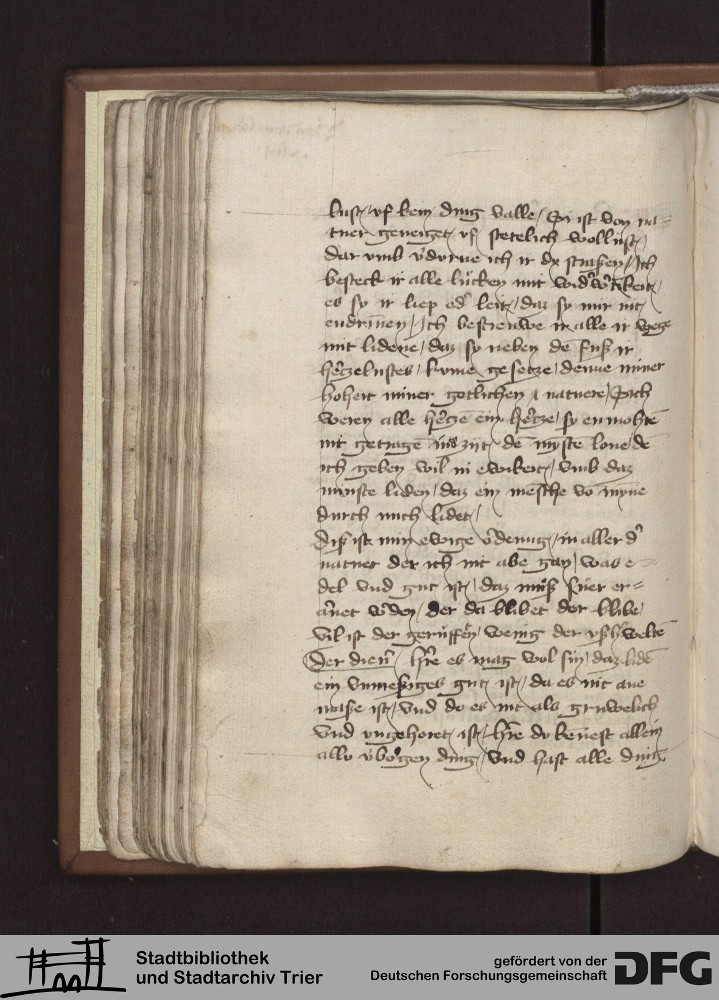 lust / vf kein ding valle / Si ist von na=
tuer geneiget vf stetelich wollust /
dar vmb v'dorne ich ir dz straßen / Ich
besteck ir alle lücken mit wid'w'tikeit /
es sy ir liep od' leit / daz sy mir nit
endrinen / Ich bestreuwe ir alle ir wege
mit lidene / daz sy neben de fuß ir
h'tzelustes / kume gesetze / denne in mier
hoheit miner gotlichen natuere / Sich
weren alle h'tze ein h'tze / sy enmohte
nit getrage in zijt / de mÿste lone / de
ich geben wil in ewikeit / vmb daz
minste liden / daz ein mesche vo mÿne
durch mich lidet /
Diß ist min ewige ordenug / in aller d'
natuer der ich nit abe gan / was e=
del vnd gut ist / daz muß suer er=
arnet w'den / der da blibet der blibe /
vil ist der gerüffen / wenig der vßh'welte
Der dien' / H're es mag wol sin / daz lide
ein vnmeßiges gut ist / da es nit ane
maße ist / vnd do es nit als gruwelich
vnd vngehoret ist / H're du kenest allein
allu v'borgen ding / vnd hast alle ding
Stadtbibliothek
und Stadtarchiv Trier
gefördert von der
Deutschen Forschungsgemeinschaft
DFG